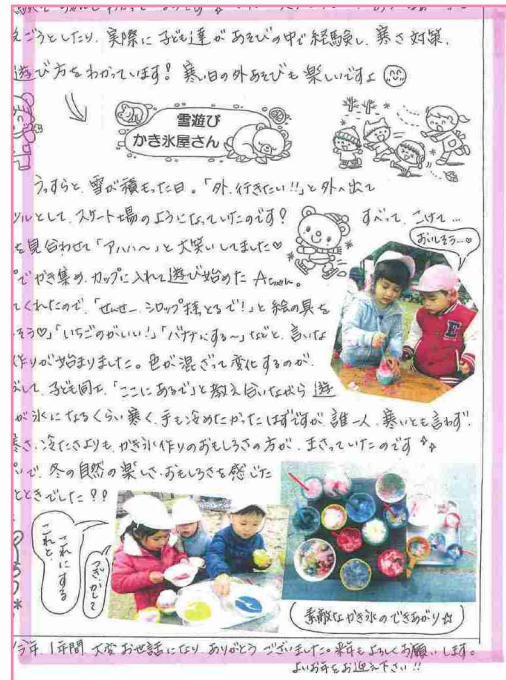 えごうとしたり、実際に子ども達があそびの中で経験し、寒さ対策、
遊び方をわかっています！寒い日の外あそびも楽しいですよ
雪遊び
かき氷屋さん
うっすらと、雪が積もった日。「外、行きたい!!」と外へ出て
ツルとして、スケート場のようになっていたのです！すべって、こけて…
を見合わせて「アハハ〜」と大笑いしてました♡
おいしそう…♡
でかき集め、カップに入れて遊び始めたAちゃん。
てくれたので、「せんせー、シロップ持っとるで！」と絵の具を
そう♡」「いちごのがいい！」「バナナにする〜」などと、言いな
作りが始まりました。色が混ざって変化するのが、
して、子ども同士、「ここにあるで」と教え合いながら遊
が氷になるくらい寒く、手も冷めたかったはずですが誰一人、寒いとも言わず、
寒さ、冷たさよりも、かき氷作りのおもしろさの方が、まさっていたのです
で、冬の自然の楽しさ・おもしろさを感じた
とときでした!!
これにする
これと、
つぎ、かして
素敵なかき氷のできあがり☆
今年1年間大変お世話になり、ありがとうございました。来年もよろしくお願いします。
よいお年をお迎え下さい!!